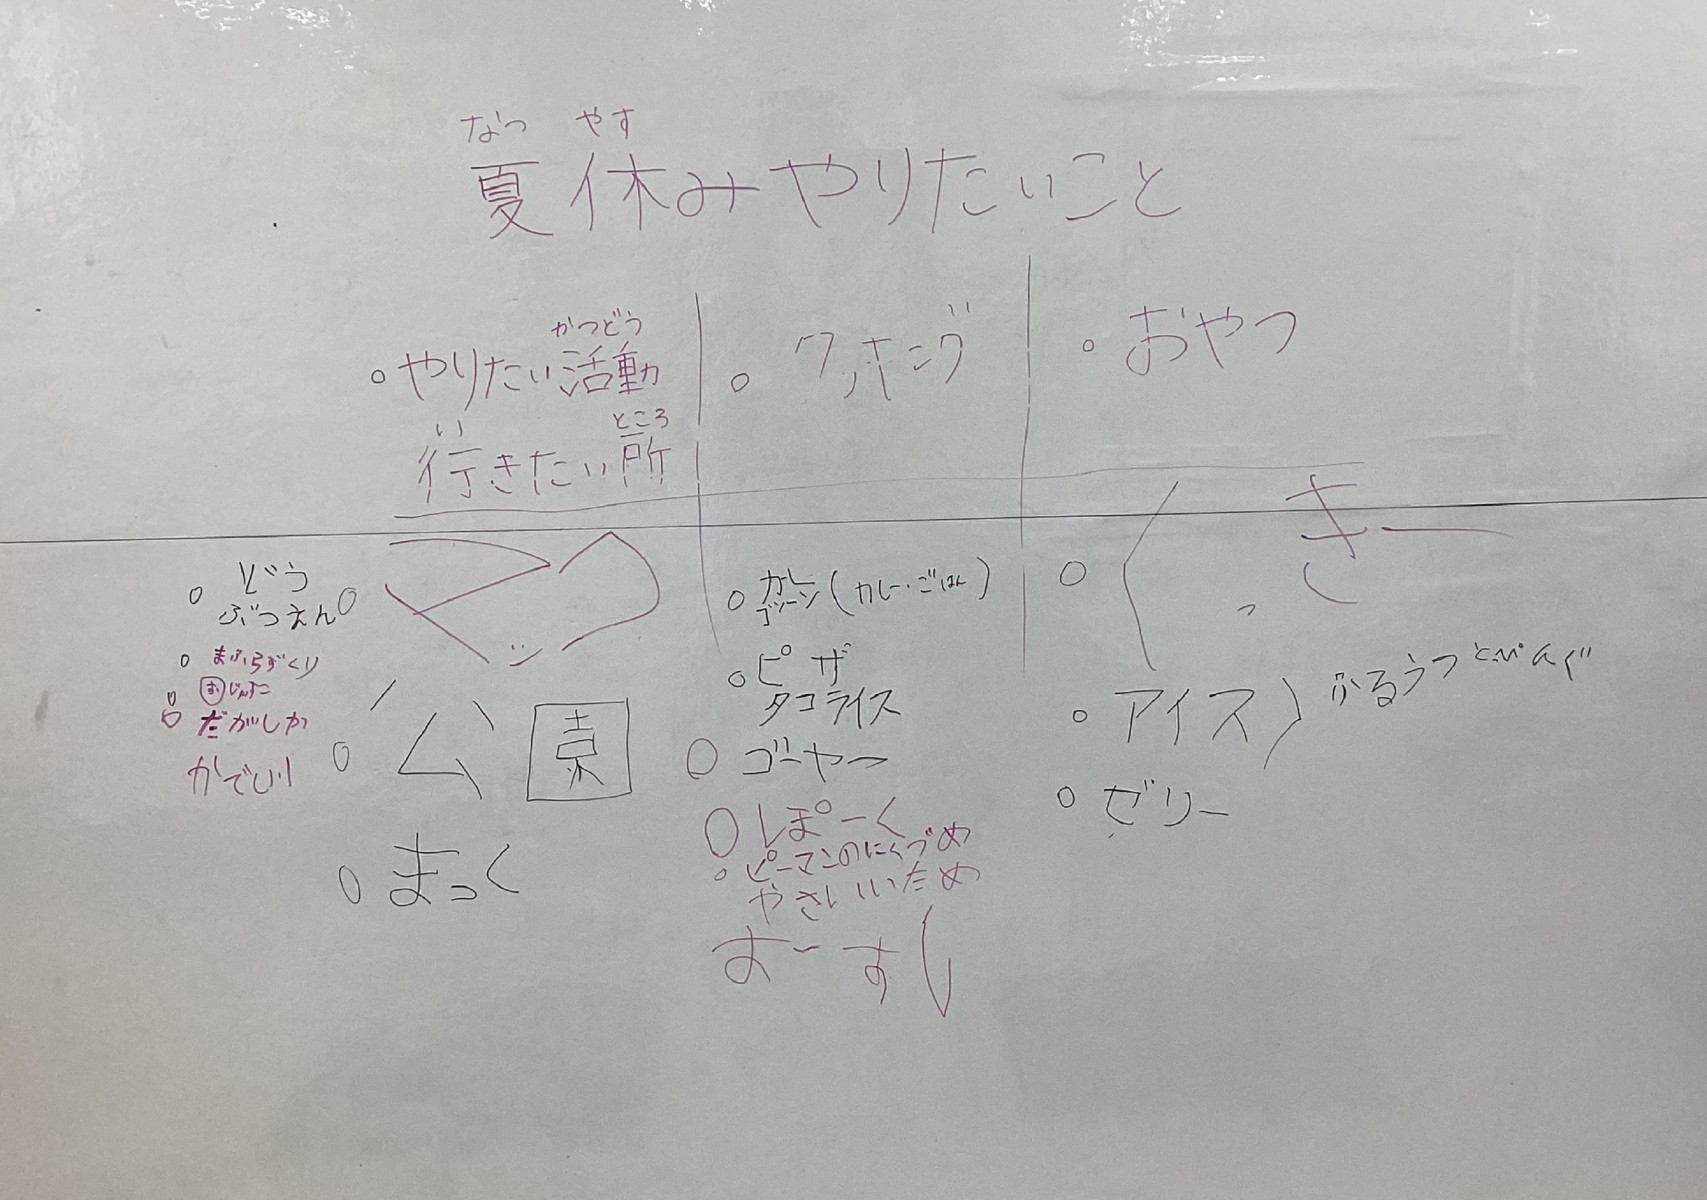 なつ やす
夏休みやりたいこと
かつどう
・やりたい活動
い ところ
行きたい所
・クッキング
・おやつ
○どう
ぶつえん
○だがしか
かでぃり
○公園
○まっく
○カレー(カレー・ごはん)
○ピザ
タコライス
○ゴーヤー
○しぽーく
○ピーマンのにくづめ
やさいいため
○くっきー
○アイス)ふるうつとぺんぐ
○ゼリー